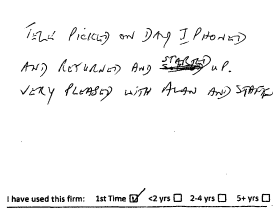 TELE PICKED ON DAY I PHONED
AND RETURNED AND STARTED UP.
VERY PLEASED WITH ALAN AND STAFF
I have used this firm: 1st Time ☑ <2 yrs ☐ 2-4 yrs ☐ 5+ yrs ☐